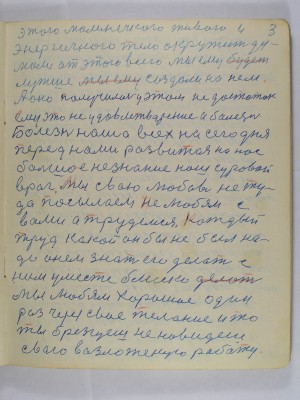 этого маленечкого живого и 3
энергичного тело окружит ду-
мали от этого всего мы ему будет
лучше мы ему создали на нем.
А оно получилось у этом не достоток
ему это не удовлетварение а балезн
Болезн наша всех на сегодня
перед нами развитая на нас
балшое незнание наш суровой
враг, Мы сваю любовь не ту-
да посылаем не любям с
вами а трудемся, Каждый
труд какой он бы не был на-
до о нем знат его делат с
ним уместе близко делат
Мы любям хорошое один
раз через свае желание и то
ты брезгуеш ненавидеш
сваго возложеную работу.